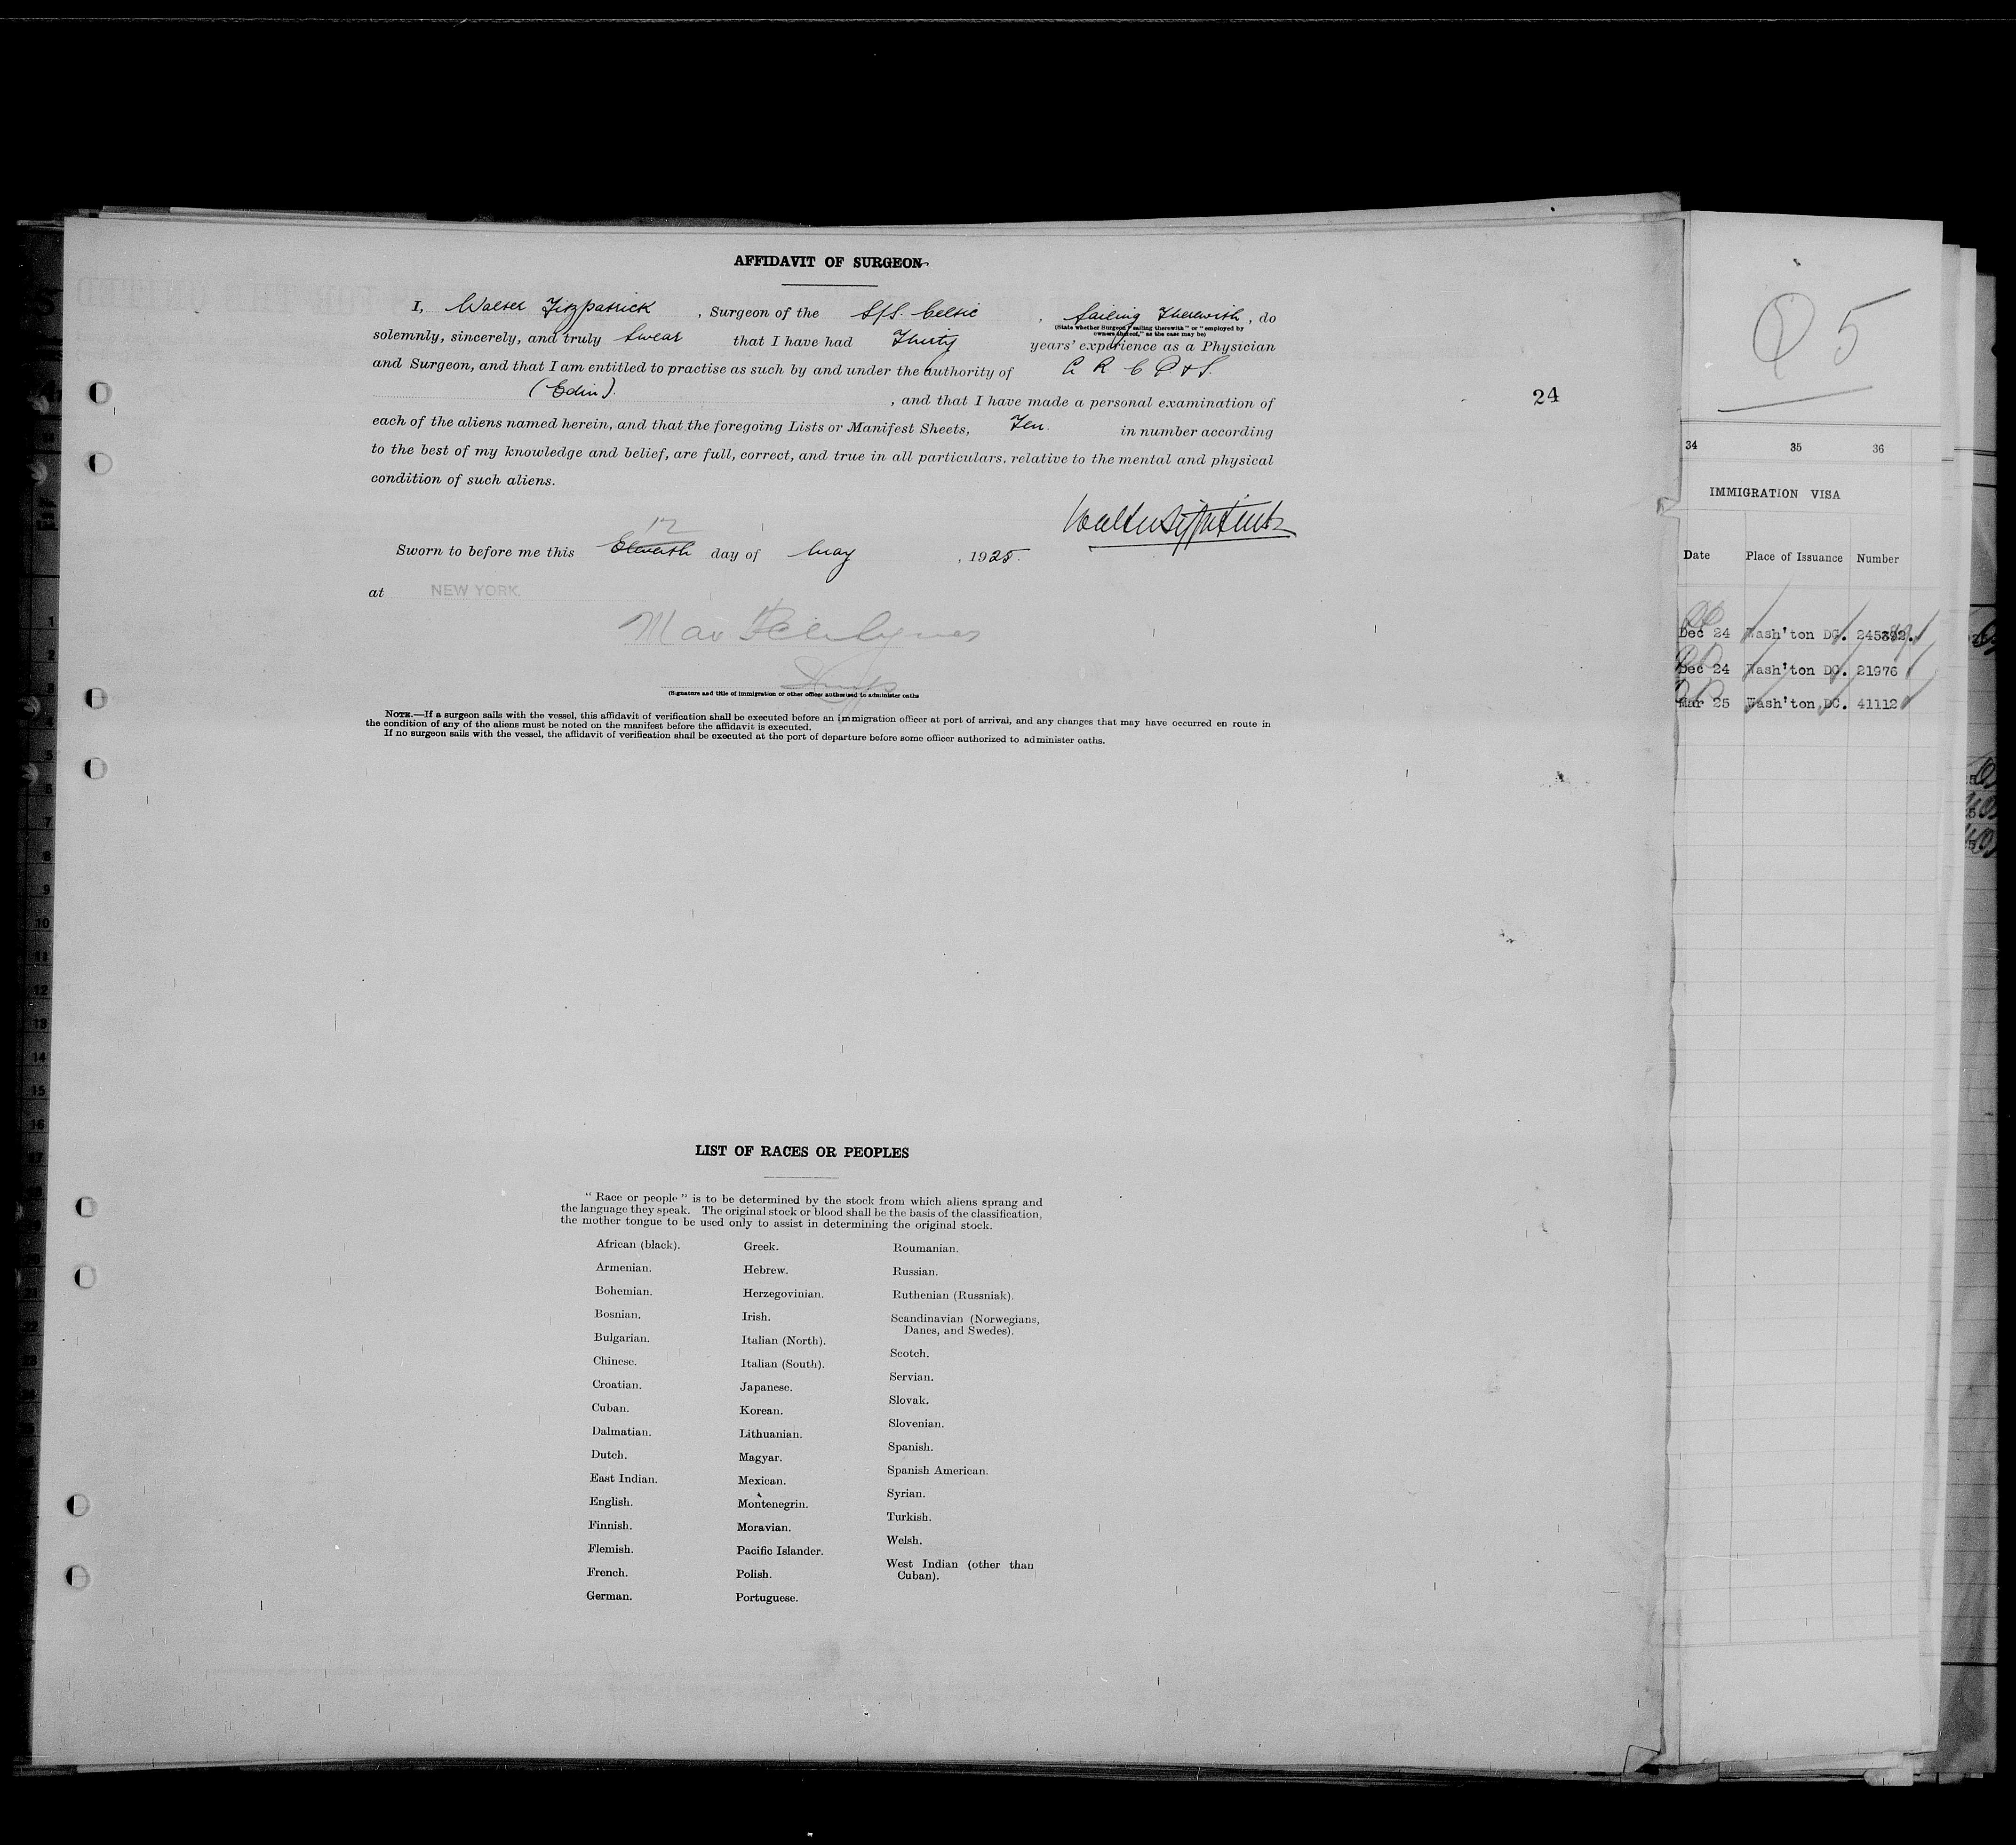 AFFIDAVIT OF SURGEON
I, Walter Fitzpatrick, Surgeon of the S/S. Celtic, Sailing Therewith, do
(State whether Surgeon "sailing therewith" or "employed by
owners thereof," as the case may be)
solemnly, sincerely, and truly Swear that I have had Thirty years' experience as a Physician
and Surgeon, and that I am entitled to practise as such by and under the authority of
(Edin). , and that I have made a personal examination of
each of the aliens named herein, and that the foregoing Lists or Manifest Sheets, Ten. in number according
to the best of my knowledge and belief, are full, correct, and true in all particulars, relative to the mental and physical
condition of such aliens.
Walter Fitzpatrick
12
Sworn to before me this Eleventh day of May, 1925.
at NEW YORK.
(Signature and title of immigration or other officer authorized to administer oaths
NOTE.—If a surgeon sails with the vessel, this affidavit of verification shall be executed before an immigration officer at port of arrival, and any changes that may have occurred en route in
the condition of any of the aliens must be noted on the manifest before the affidavit is executed.
If no surgeon sails with the vessel, the affidavit of verification shall be executed at the port of departure before some officer authorized to administer oaths.
24
LIST OF RACES OR PEOPLES
"Race or people" is to be determined by the stock from which aliens sprang and
the language they speak. The original stock or blood shall be the basis of the classification,
the mother tongue to be used only to assist in determining the original stock.
African (black).
Armenian.
Bohemian.
Bosnian.
Bulgarian.
Chinese.
Croatian.
Cuban.
Dalmatian.
Dutch.
East Indian.
English.
Finnish.
Flemish.
French.
German.
Greek.
Hebrew.
Herzegovinian.
Irish.
Italian (North).
Italian (South).
Japanese.
Korean.
Lithuanian.
Magyar.
Mexican.
Montenegrin.
Moravian.
Pacific Islander.
Polish.
Portuguese.
Roumanian.
Russian.
Ruthenian (Russniak).
Scandinavian (Norwegians,
Danes, and Swedes).
Scotch.
Servian.
Slovak.
Slovenian.
Spanish.
Spanish American.
Syrian.
Turkish.
Welsh.
West Indian (other than
Cuban).
34 35 36
IMMIGRATION VISA
Date Place of Issuance Number
Dec 24 Wash'ton DC.
Dec 24 Wash'ton DC. 21976
Mar 25 Wash'ton DC. 41112
1
2
3
4
5
6
7
8
9
10
11
12
13
14
15
16